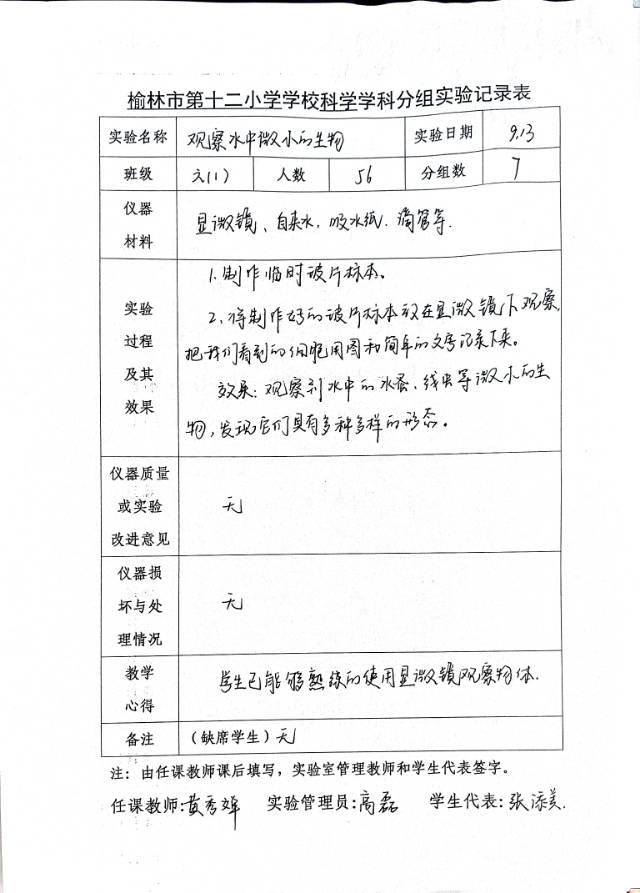 榆林市第十二小学学校科学学科分组实验记录表
实验名称 观察水中微小的生物 实验日期 9.13
班级 六(1) 人数 56 分组数 7
仪器材料 显微镜、自来水,吸水纸.滴管等.
实验过程及其效果
1.制作临时玻片标本。
2.将制作好的玻片标本放在显微镜下观察,
把我们看到的细胞用图和简单的文字记录下来。
效果:观察到水中的水蚤、线虫等微小的生
物,发现它们具有多种多样的形态。
仪器质量或实验改进意见 无
仪器损坏与处理情况 无
教学心得 学生已能够熟练的使用显微镜观察物体.
备注 (缺席学生)无
注:由任课教师课后填写,实验室管理教师和学生代表签字。
任课教师:黄秀 实验管理员:高磊 学生代表:张添美.